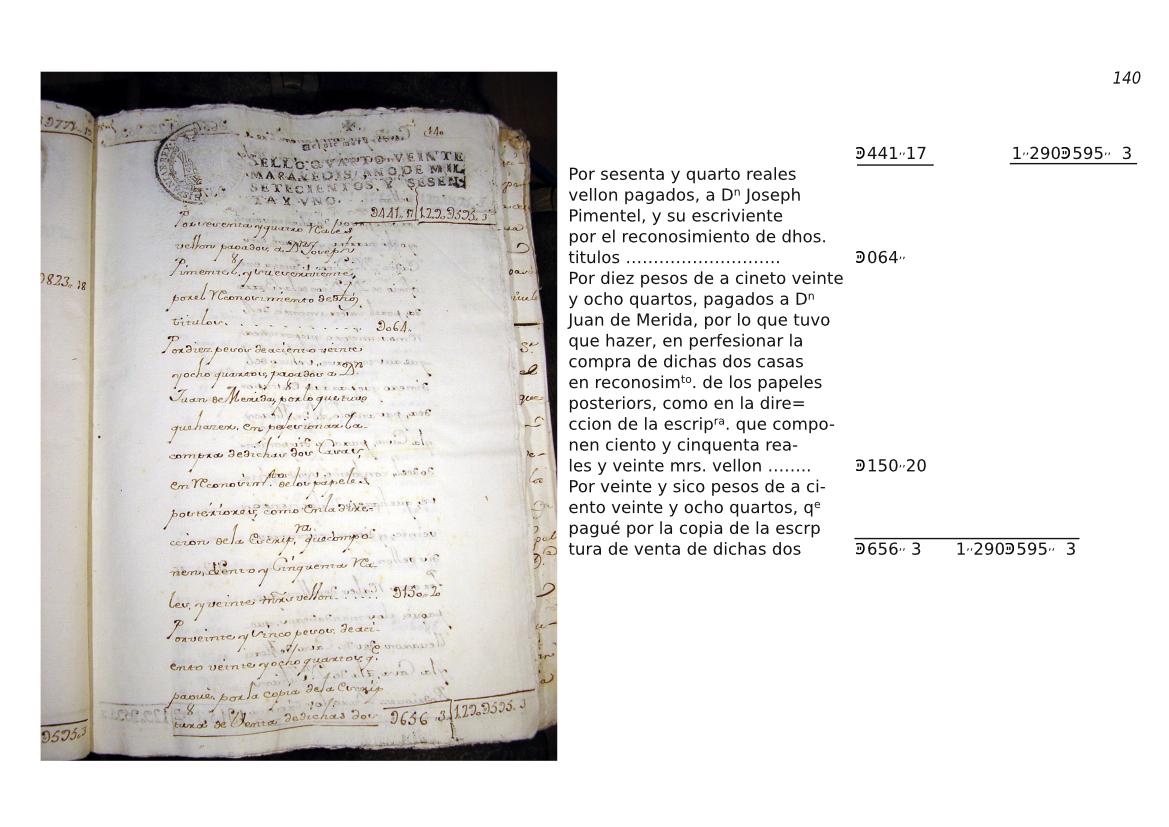 140
SELLO QVARTO, VEINTE
MARAVEDIS, AÑO DE MIL
SETECIENTOS, Y SESEN-
TA Y VNO.
Por sesenta y quatro reales
vellon pagados, a Dn Joseph
Pimentel, y su escriviente
por el reconosimiento de dhos
titulos
Por diez pesos de a ciento veinte
y ocho quartos, pagados a Dn
Juan de Merida, por lo que tuvo
que hazer, en perfesionar la
compra de dichas dos Casas
en reconosimto. de los papeles
posteriores, como en la dire-
ccion de la Escripra. que compo-
nen, ciento y Cinquenta rea-
les, y veinte mrs vellon
Por veinte y sinco pesos, de a ci-
ento veinte y ocho quartos, q.e
paguè, por la copia de la Escrip
tura de Venta de dichas dos
140
Ↄ441,,17 1,,290Ↄ595,, 3
Por sesenta y quarto reales
vellon pagados, a Dⁿ Joseph
Pimentel, y su escriviente
por el reconosimiento de dhos.
titulos ……………………… Ↄ064,,
Por diez pesos de a cineto veinte
y ocho quartos, pagados a Dⁿ
Juan de Merida, por lo que tuvo
que hazer, en perfesionar la
compra de dichas dos casas
en reconosimᵗᵒ. de los papeles
posteriors, como en la dire=
ccion de la escripʳᵃ. que compo-
nen ciento y cinquenta rea-
les y veinte mrs. vellon …….. Ↄ150,,20
Por veinte y sico pesos de a ci-
ento veinte y ocho quartos, qᵉ
pagué por la copia de la escrp
tura de venta de dichas dos Ↄ656,, 3 1,,290Ↄ595,, 3